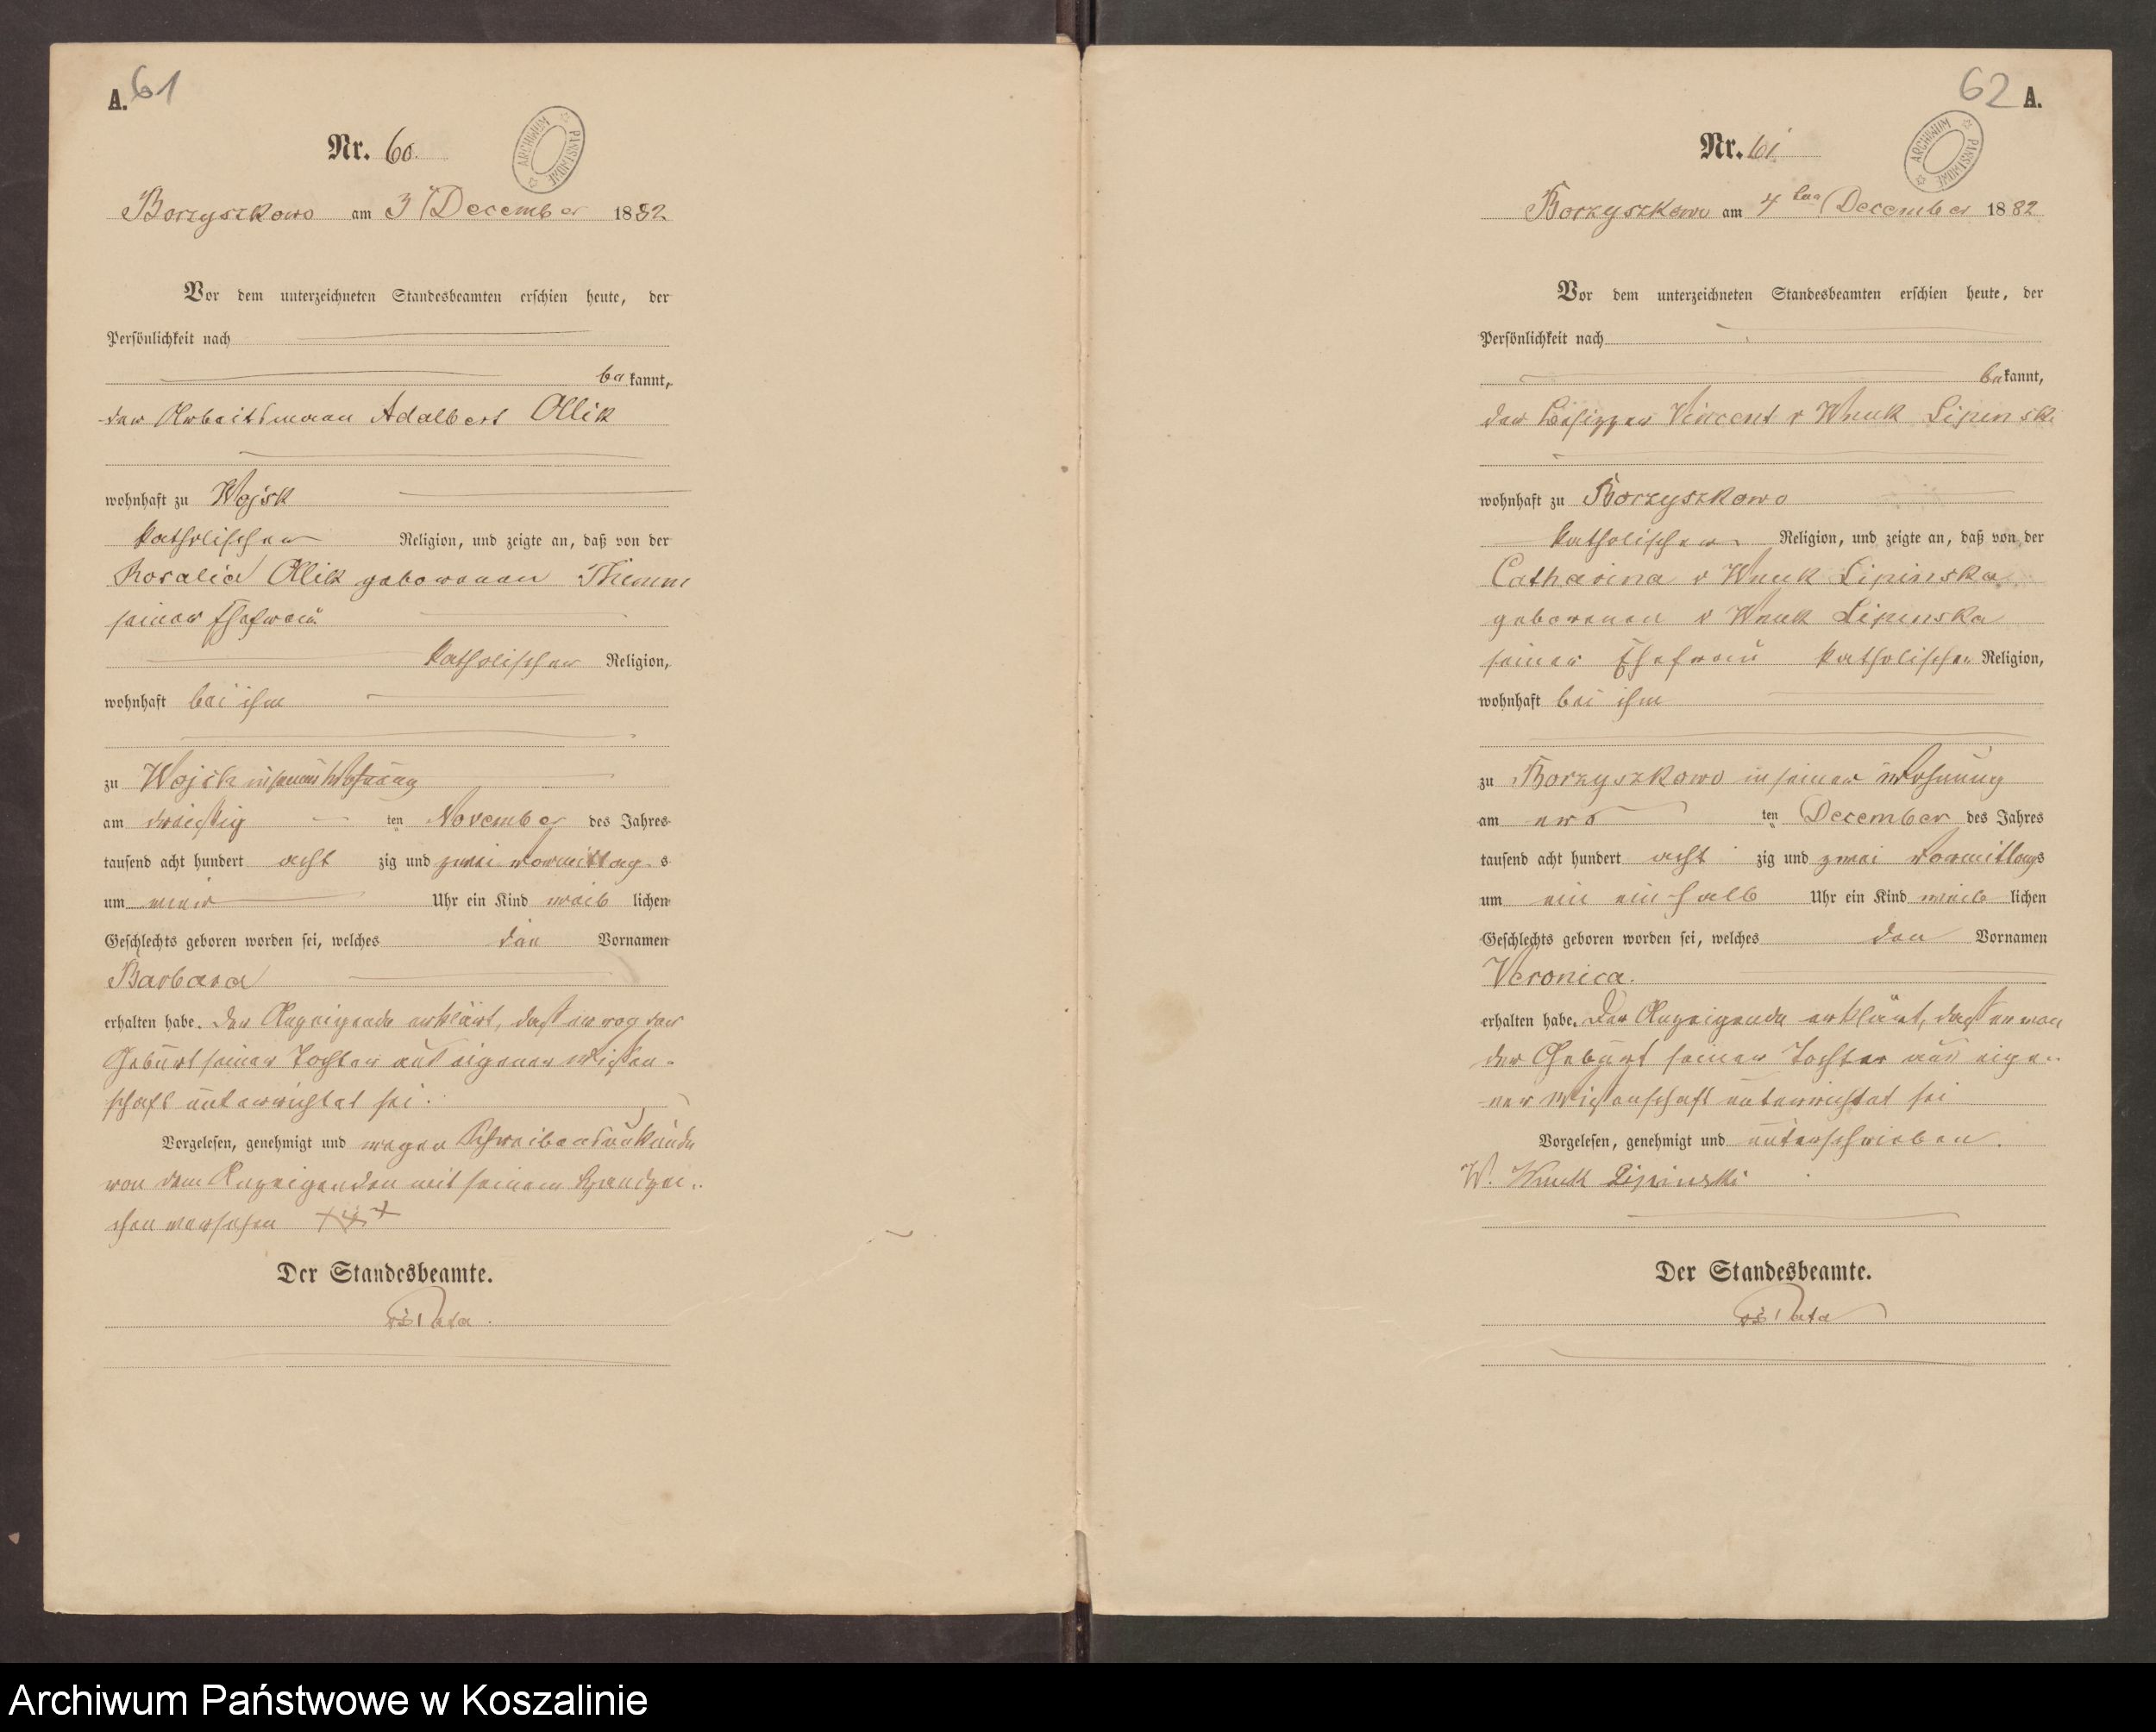 A. 61
Nr. 60.
Borzyszkowo am 3 December 1882
Vor dem unterzeichneten Standesbeamten erschien heute, der
Persönlichkeit nach
bekannt,
der Arbeitsmann Adalbert Ollik
wohnhaft zu Wojsk
katholischer Religion, und zeigte an, daß von der
Rosalia Ollik geborenen
seiner Ehefrau
katholischer Religion,
wohnhaft bei ihm
zu Wojsk in seiner Wohnung
am dreißig ten November des Jahres
tausend acht hundert acht zig und zwei Vormittag s
um Uhr ein Kind weib lichen
Geschlechts geboren worden sei, welches den Vornamen
Barbara
erhalten habe. Der Anzeigende erklärt, daß er von der
Geburt seiner Tochter aus eigener Wissen-
schaft unterrichtet sei.
Vorgelesen, genehmigt und wegen Schreibensunkunde
von dem Anzeigenden mit seinem Handzei-
chen versehen +++
Der Standesbeamte.
62 A.
Nr. 61
Borzyszkowo am 4ten December 1882
Vor dem unterzeichneten Standesbeamten erschien heute, der
Persönlichkeit nach
bekannt,
der Besitzer Vincent v Wnuk Lipinski
wohnhaft zu Borzyszkowo
katholischer Religion, und zeigte an, daß von der
Catharina v Wnuk Lipinska
geborenen v Wnuk Lipinska
seiner Ehefrau katholischer Religion,
wohnhaft bei ihm
zu Borzyszkowo in seiner Wohnung
am ers ten December des Jahres
tausend acht hundert acht zig und zwei Vormittags
um ein ein halb Uhr ein Kind weib lichen
Geschlechts geboren worden sei, welches den Vornamen
Veronica.
erhalten habe. Der Anzeigende erklärt, daß er von
der Geburt seiner Tochter aus eige-
ner Wissenschaft unterrichtet sei
Vorgelesen, genehmigt und unterschrieben.
W. Wnuk Lipinski
Der Standesbeamte.
ARCHIWUM PAŃSTWOWE
ARCHIWUM PAŃSTWOWE
Archiwum Państwowe w Koszalinie